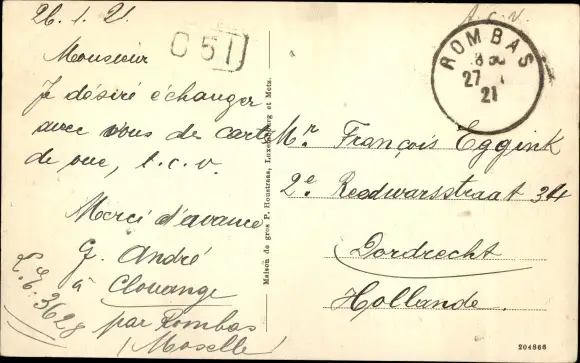 26.1.21.
Monsieur
Je désiré échanger
avec vous de carte
de vue, t.c.v.
Merci d'avance
G. André
à Clouange
par Rombas
(Moselle)
C 51
Maison de gros P. Houstraas, Luxembourg et Metz.
A.C.V.
ROMBAS
27
21
Mr. François Eggink
2e Reedwarsstraat 34
Dordrecht
Hollande.
204866